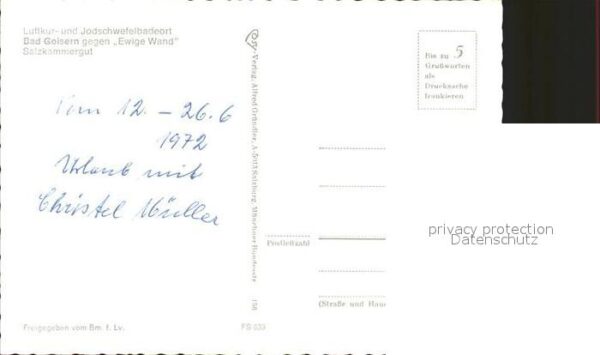 Luftkur- und Jodschwefelbadeort
Bad Goisern gegen „Ewige Wand"
Salzkammergut
Vom 12. – 26.6
1972
Urlaub mit
Christel Müller
Freigegeben vom Bm. f. Lv.
FS 639
-Verlag, Alfred Gründler, A-5013 Salzburg, Münchner Bundesstr. 156
Bis zu 5
Grußworten
als
Drucksache
frankieren
Postleitzahl
(Straße und Haus
privacy protection
Datenschutz